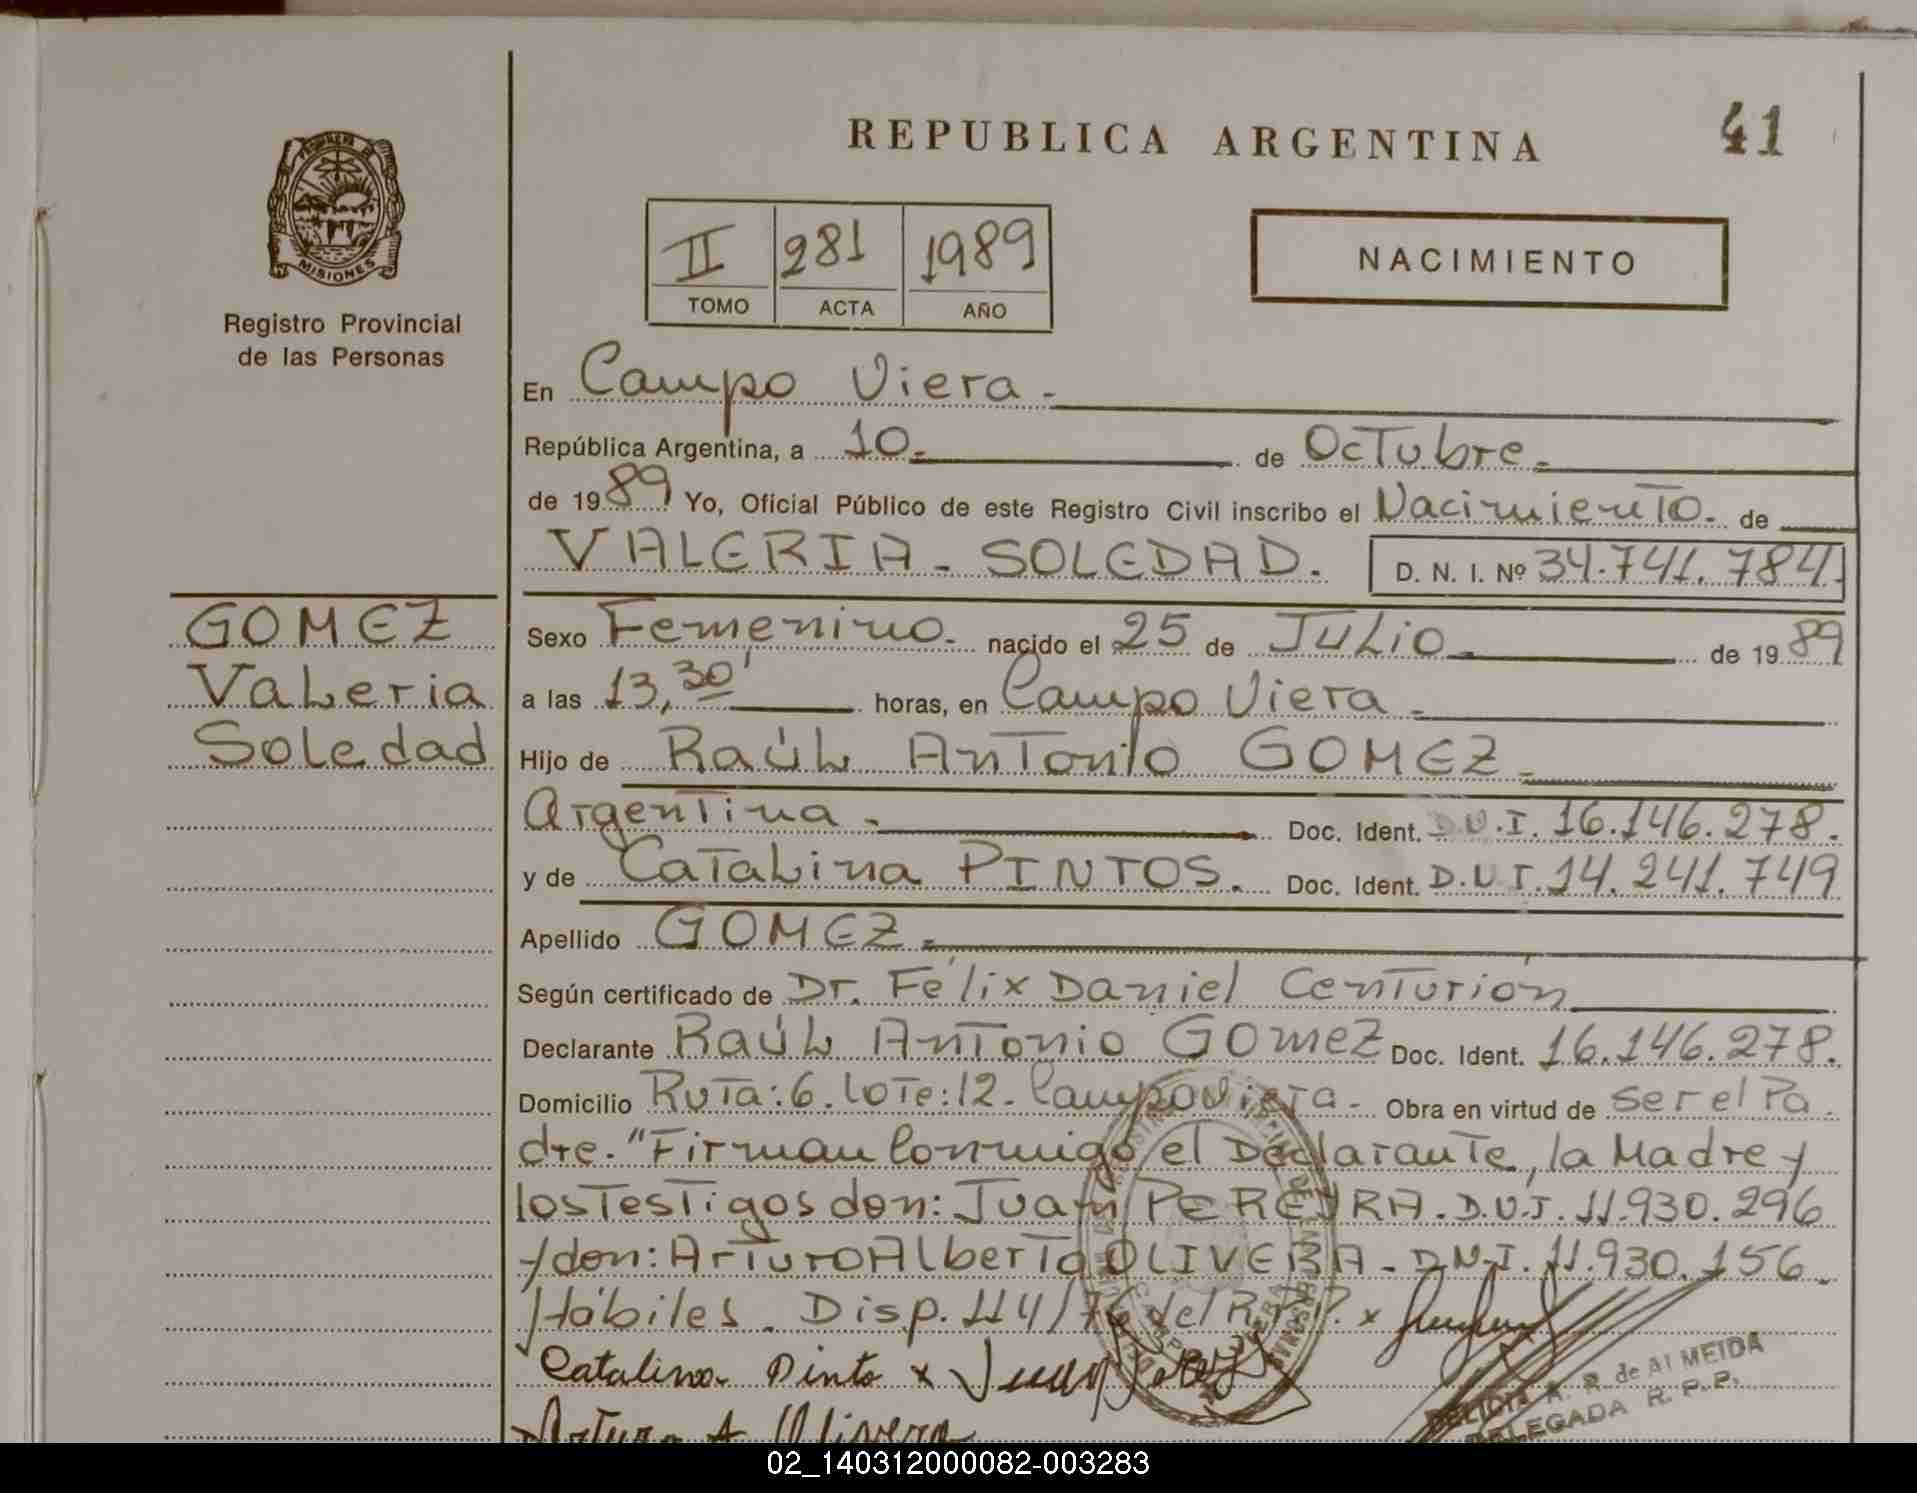 REPUBLICA ARGENTINA
41
MISIONES
Registro Provincial
de las Personas
II 281 1989
TOMO ACTA AÑO
NACIMIENTO
En Campo Viera.
República Argentina, a 10. de Octubre.
de 1989 Yo, Oficial Público de este Registro Civil inscribo el Nacimiento. de
VALERIA - SOLEDAD. D. N. I. Nº 34.741.784.
GOMEZ
Valeria
Soledad
Sexo Femenino. nacido el 25 de Julio. de 1989
a las 13,30' horas, en Campo Viera.
Hijo de Raúl Antonio GOMEZ.
Argentina. Doc. Ident. D.N.I. 16.146.278.
y de Catalina PINTOS. Doc. Ident. D.N.I. 14.241.749
Apellido GOMEZ.
Según certificado de Dr. Félix Daniel Centurión
Declarante Raúl Antonio GOmeZ Doc. Ident. 16.146.278.
Domicilio Ruta: 6. Lote: 12. Campo Viera. Obra en virtud de ser el Pa
dre. "Firman Conmigo el Declarante, la Madre y
los Testigos don: Juan PEREYRA. D.N.I. 11.930.296
y don: Arturo Alberto OLIVERA. D.N.I. 11.930.156.
Hábiles. Disp. 114/76 del R.P.P. x
Catalina Pinto x Juan
Arturo A Olivera
DELICIA A. R. de ALMEIDA
DELEGADA R. P. P.
02_140312000082-003283